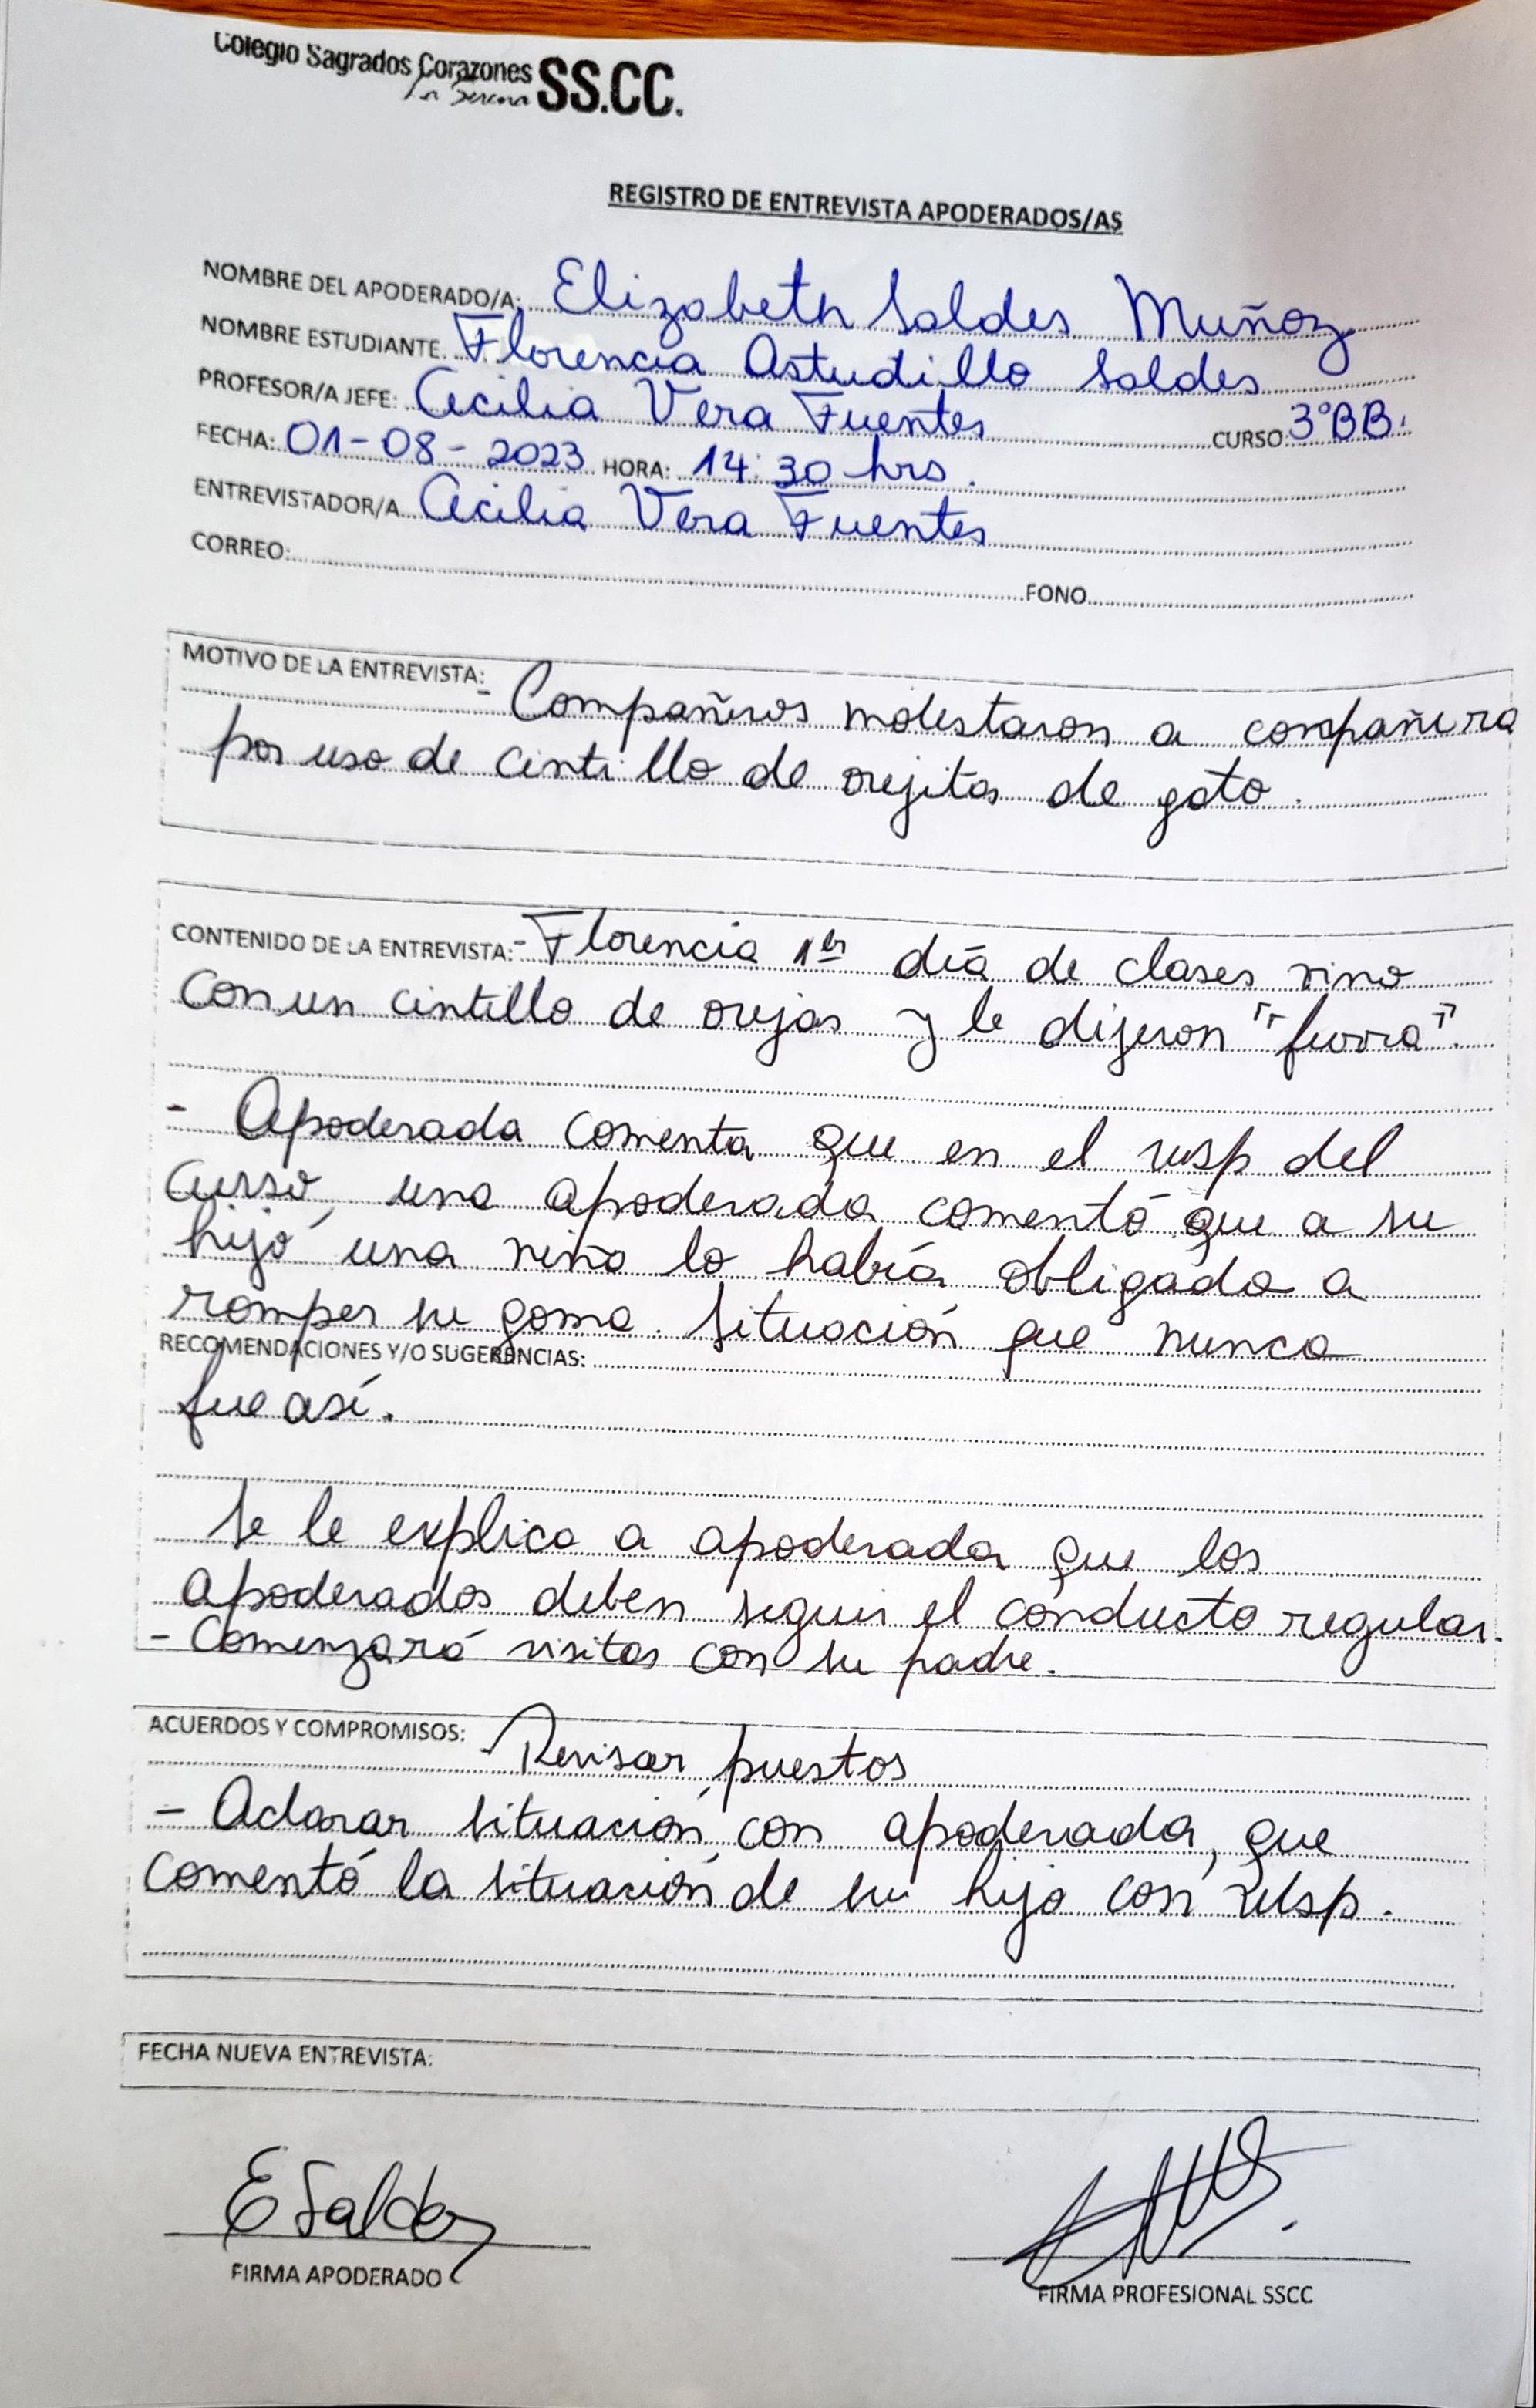 Colegio Sagrados Corazones SS.CC.
La Serena
REGISTRO DE ENTREVISTA APODERADOS/AS
NOMBRE DEL APODERADO/A: Elizabeth Saldes Muñoz
NOMBRE ESTUDIANTE. Florencia Astudillo Saldes
PROFESOR/A JEFE: Cecilia Vera Fuentes CURSO 3°BB.
FECHA: 01-08-2023 HORA: 14:30 hrs.
ENTREVISTADOR/A Cecilia Vera Fuentes
CORREO: FONO
MOTIVO DE LA ENTREVISTA: - Compañeros molestaron a compañera
por uso de cintillo de orejitas de gato.
CONTENIDO DE LA ENTREVISTA: - Florencia 1er día de clases vino
con un cintillo de orejas y le dijeron "furra".
- Apoderada comenta que en el wsp del
curso, una apoderada comentó que a su
hijo una niña lo había obligado a
romper su goma. Situación que nunca
RECOMENDACIONES Y/O SUGERENCIAS:
fue así.
Se le explica a apoderada que los
apoderados deben seguir el conducto regular.
- Comenzará visitas con su padre.
ACUERDOS Y COMPROMISOS: - Revisar puestos
- Aclarar situación con apoderada, que
comentó la situación de su hijo con wsp.
FECHA NUEVA ENTREVISTA:
E Saldes
FIRMA APODERADO
FIRMA PROFESIONAL SSCC